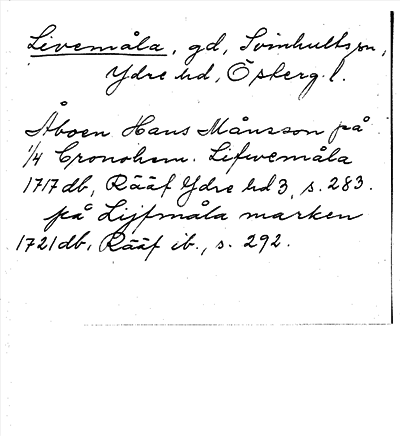 Livemåla, gd, Svinhults sn,
Ydre hd, Österg. l.
Åboen Hans Månsson på
1/4 Cronohem. Lifwemåla
1717 db, Rääf Ydre hd 3, s. 283.
på Lijfmåla marken
1721 db, Rääf ib., s. 292.